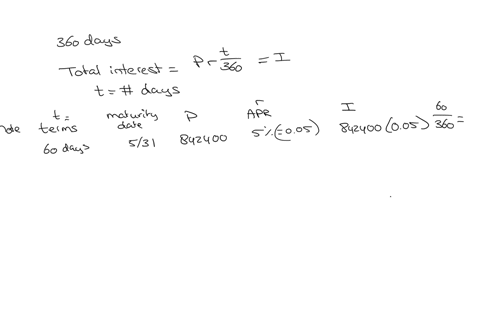 360 days
Total interest = Pr t/360 = I
t = # days
t = terms maturity date P r APR I
60 days 5/31 842400 5% (=0.05) 842400 (0.05) 60/360 =